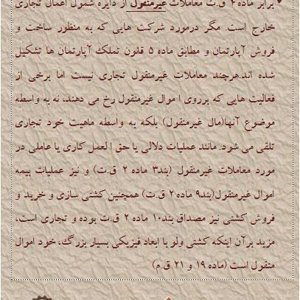 • برابر ماده ۴ ق.ت معاملات غیرمنقول از دایره شمول اعمال تجاری
خارج است. مگر درمورد شرکت هایی که به منظور ساخت و
فروش آپارتمان و مطابق ماده ۵ قلنون تملک آپارتمان ها تشکیل
شده اند.هرچند معاملات غیرمنقول تجاری نیست اما برخی از
فعالیت هایی که برروی اموال غیرمنقول رخ می دهند، نه به واسطه
موضوع آنها(مال غیرمنقول) بلکه به واسطه ماهیت خود تجاری
تلقی می شود. مانند عملیات دلالی یا حق العمل کاری یا عاملی در
مورد معاملات غیرمنقول (بند۳ ماده ۲ ق.ت) و نیز عملیات بیمه
اموال غیرمنقول(بند۹ ماده ۲ ق.ت) همچنین کشتی سازی و خرید و
فروش کشتی نیز مصداق بند۱۰ ماده ۲ ق.ت بوده و تجاری است،
مزید برآن اینکه کشتی ولو با ابعاد فیزیکی بسیار بزرگ، خود اموال
منقول است (ماده ۱۹ و ۲۱ ق.م)